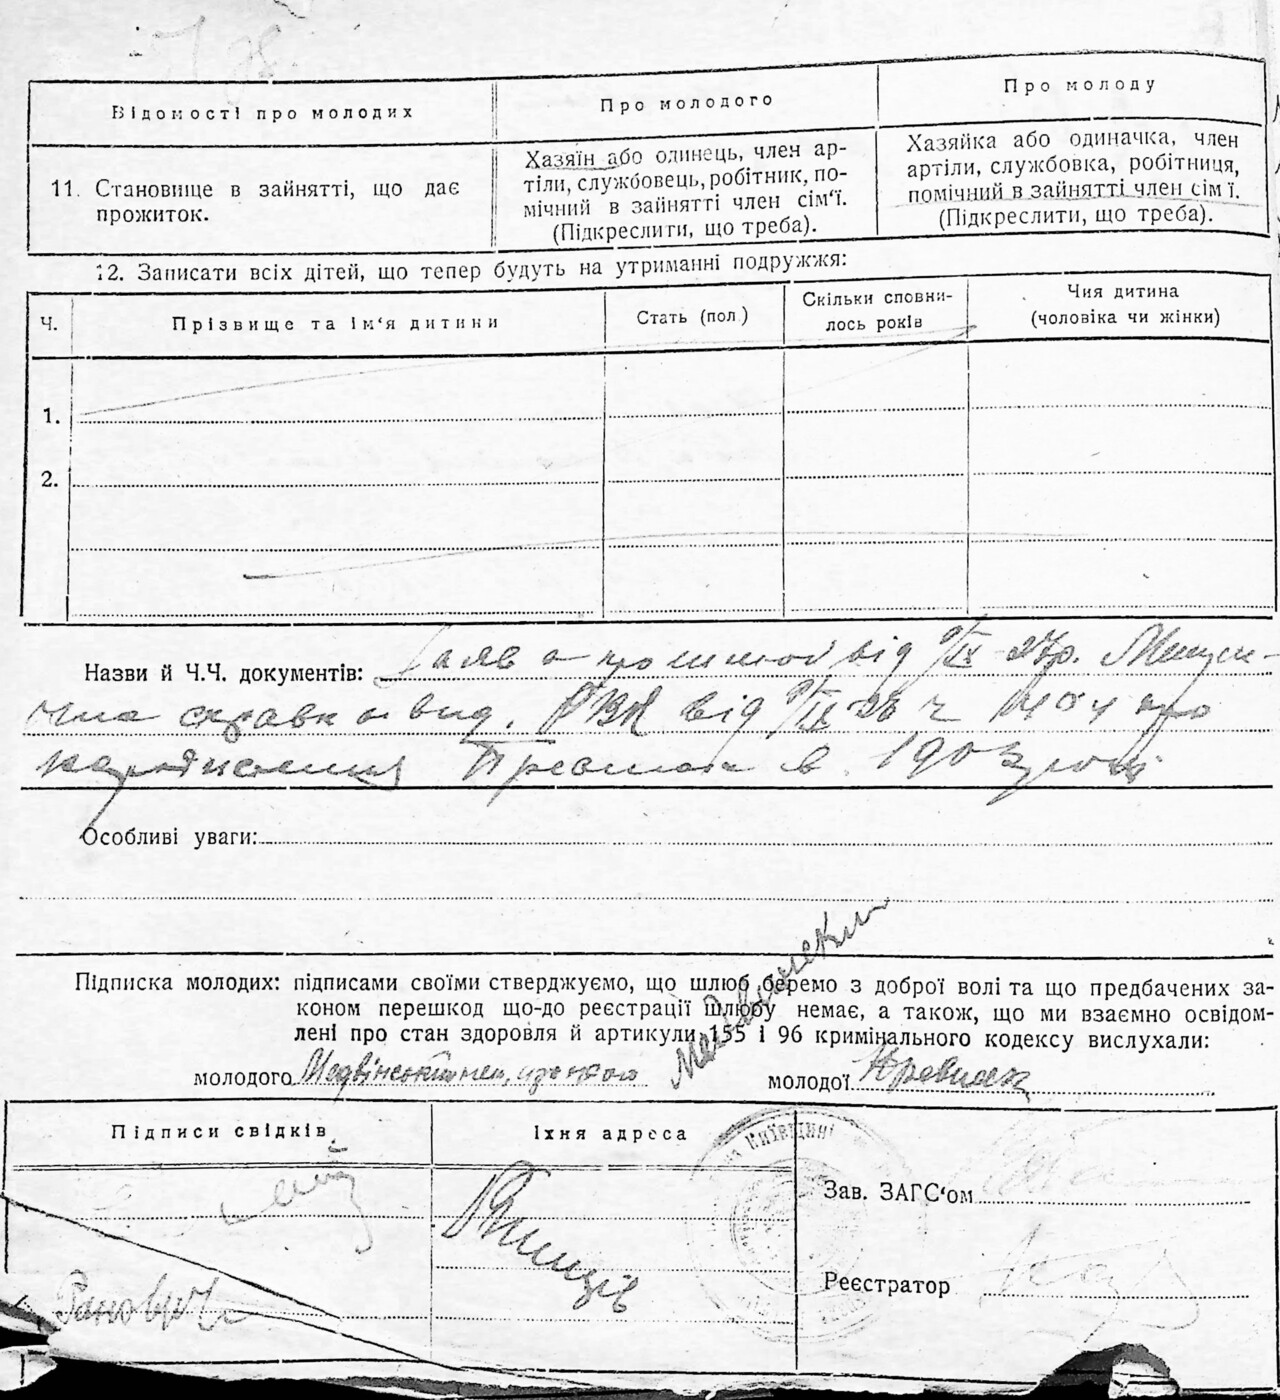 Відомості про молодих
Про молодого
Про молоду
11. Становище в зайнятті, що дає
прожиток.
Хазяїн або одинець, член ар-
тіли, службовець, робітник, по-
мічний в зайнятті член сім'ї.
(Підкреслити, що треба).
Хазяйка або одиначка, член
артіли, службовка, робітниця,
помічний в зайнятті член сім ї.
(Підкреслити, що треба).
12. Записати всіх дітей, що тепер будуть на утриманні подружжя:
Ч.
Прізвище та ім'я дитини
Стать (пол)
Скільки сповни-
лось років
Чия дитина
(чоловіка чи жінки)
1.
2.
Назви й Ч.Ч. документів: від
справка вид. РВК від ч 1404 про
народження в 1903 році
Особливі уваги:
Підписка молодих: підписами своїми стверджуємо, що шлюб беремо з доброї волі та що предбачених за-
коном перешкод що-до реєстрації шлюбу немає, а також, що ми взаємно освідом-
лені про стан здоровля й артикули 155 і 96 кримінального кодексу вислухали:
молодого
молодої
Підписи свідків
Їхня адреса
Зав. ЗАГС'ом
Реєстратор
Ранович